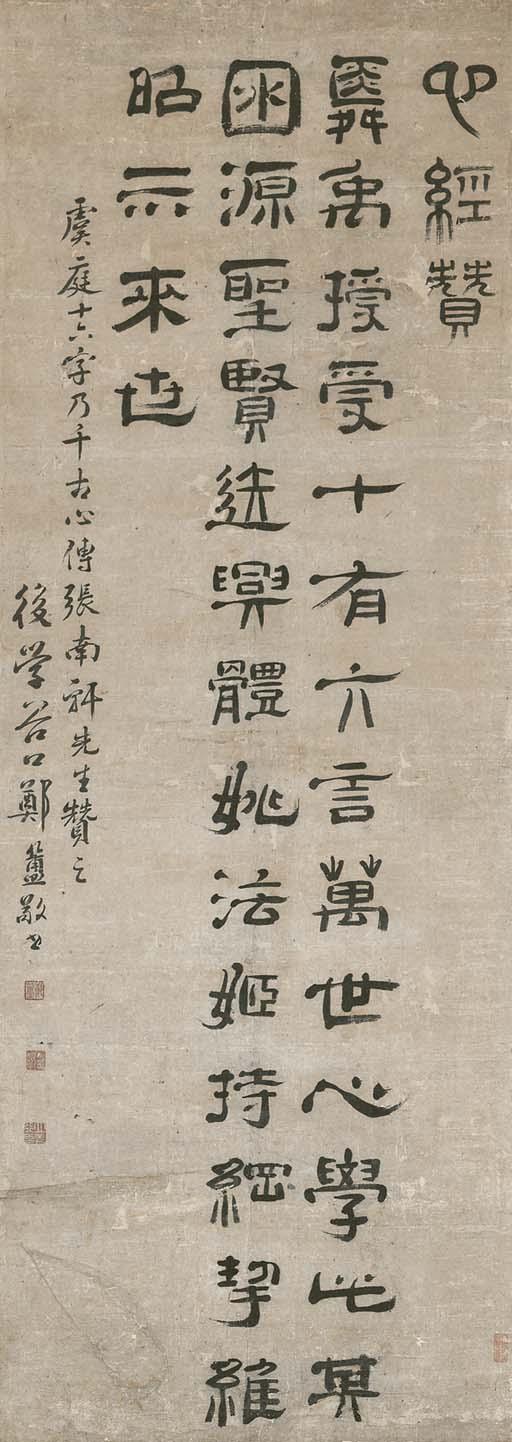 心經贊
舜禹授受十有六言萬世心學此其
囦源聖賢迭興體姚法姬持綱挈維
昭示來世
虞庭十六字乃千古心傳張南軒先生贊之
後学谷口鄭簠敬书